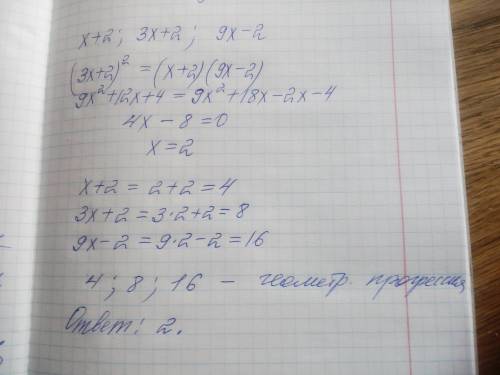 x+2; 3x+2; 9x-2
(3x+2)² = (x+2)(9x-2)
9x²+12x+4 = 9x²+18x-2x-4
4x-8=0
x=2
x+2 = 2+2 = 4
3x+2 = 3·2+2 = 8
9x-2 = 9·2-2 = 16
4; 8; 16 - геометр. прогрессия
Ответ: 2.